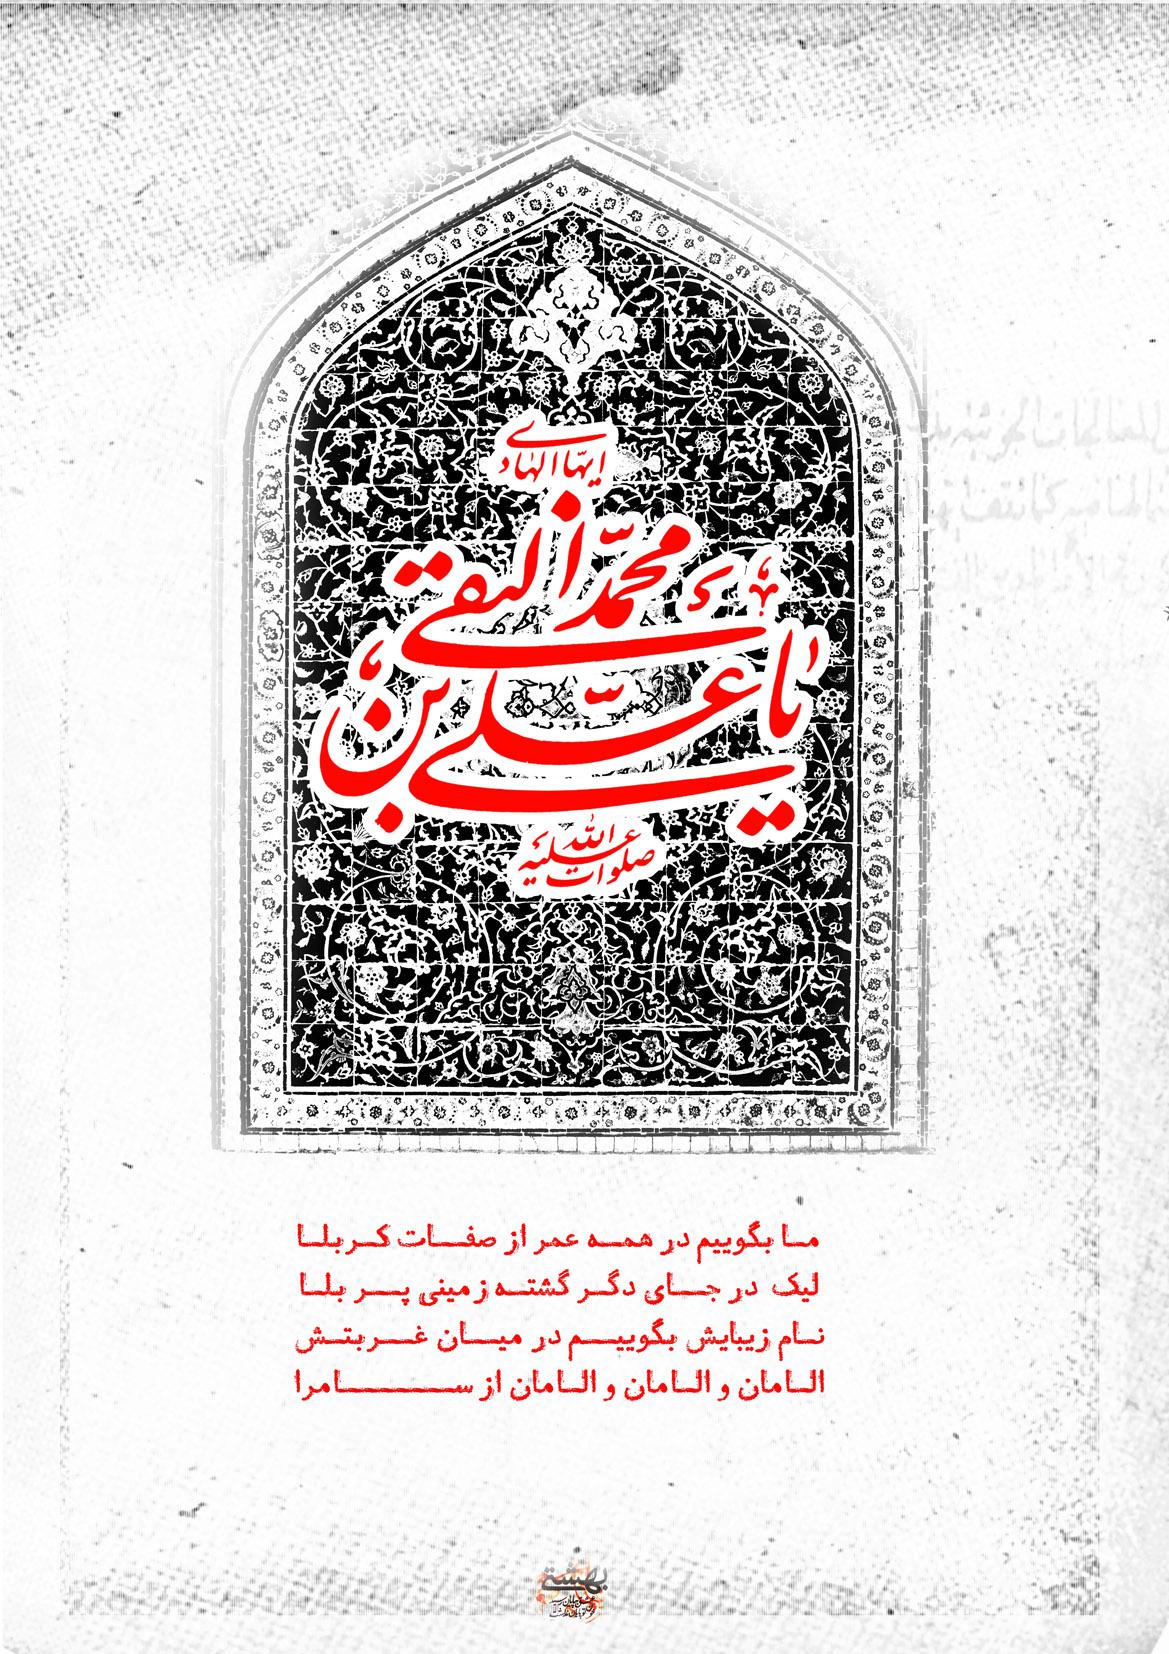 ایها الهادی
یا علی بن محمد النقی
صلوات الله علیه
ما بگوییم در همه عمر از صفات کربلا
لیک در جای دگر گشته زمینی پر بلا
نام زیبایش بگوییم در میان غربتش
الامان و الامان و الامان از سامرا
بهشتی